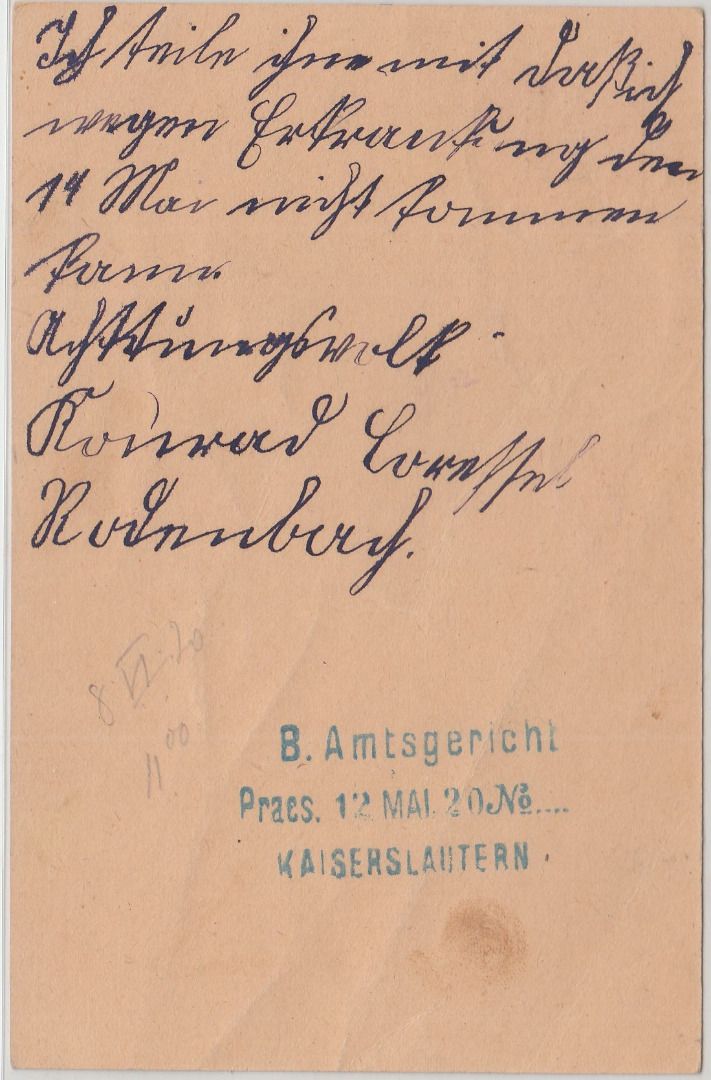 Ich teile ihne mit daß ich
wegen Erkrankung den
14 Mai nicht kommen
kann.
Achtungsvolt
Konrad
Rodenbach.
8.VI.20
11 00
B. Amtsgericht
Praes. 12 MAI. 20 No....
KAISERSLAUTERN